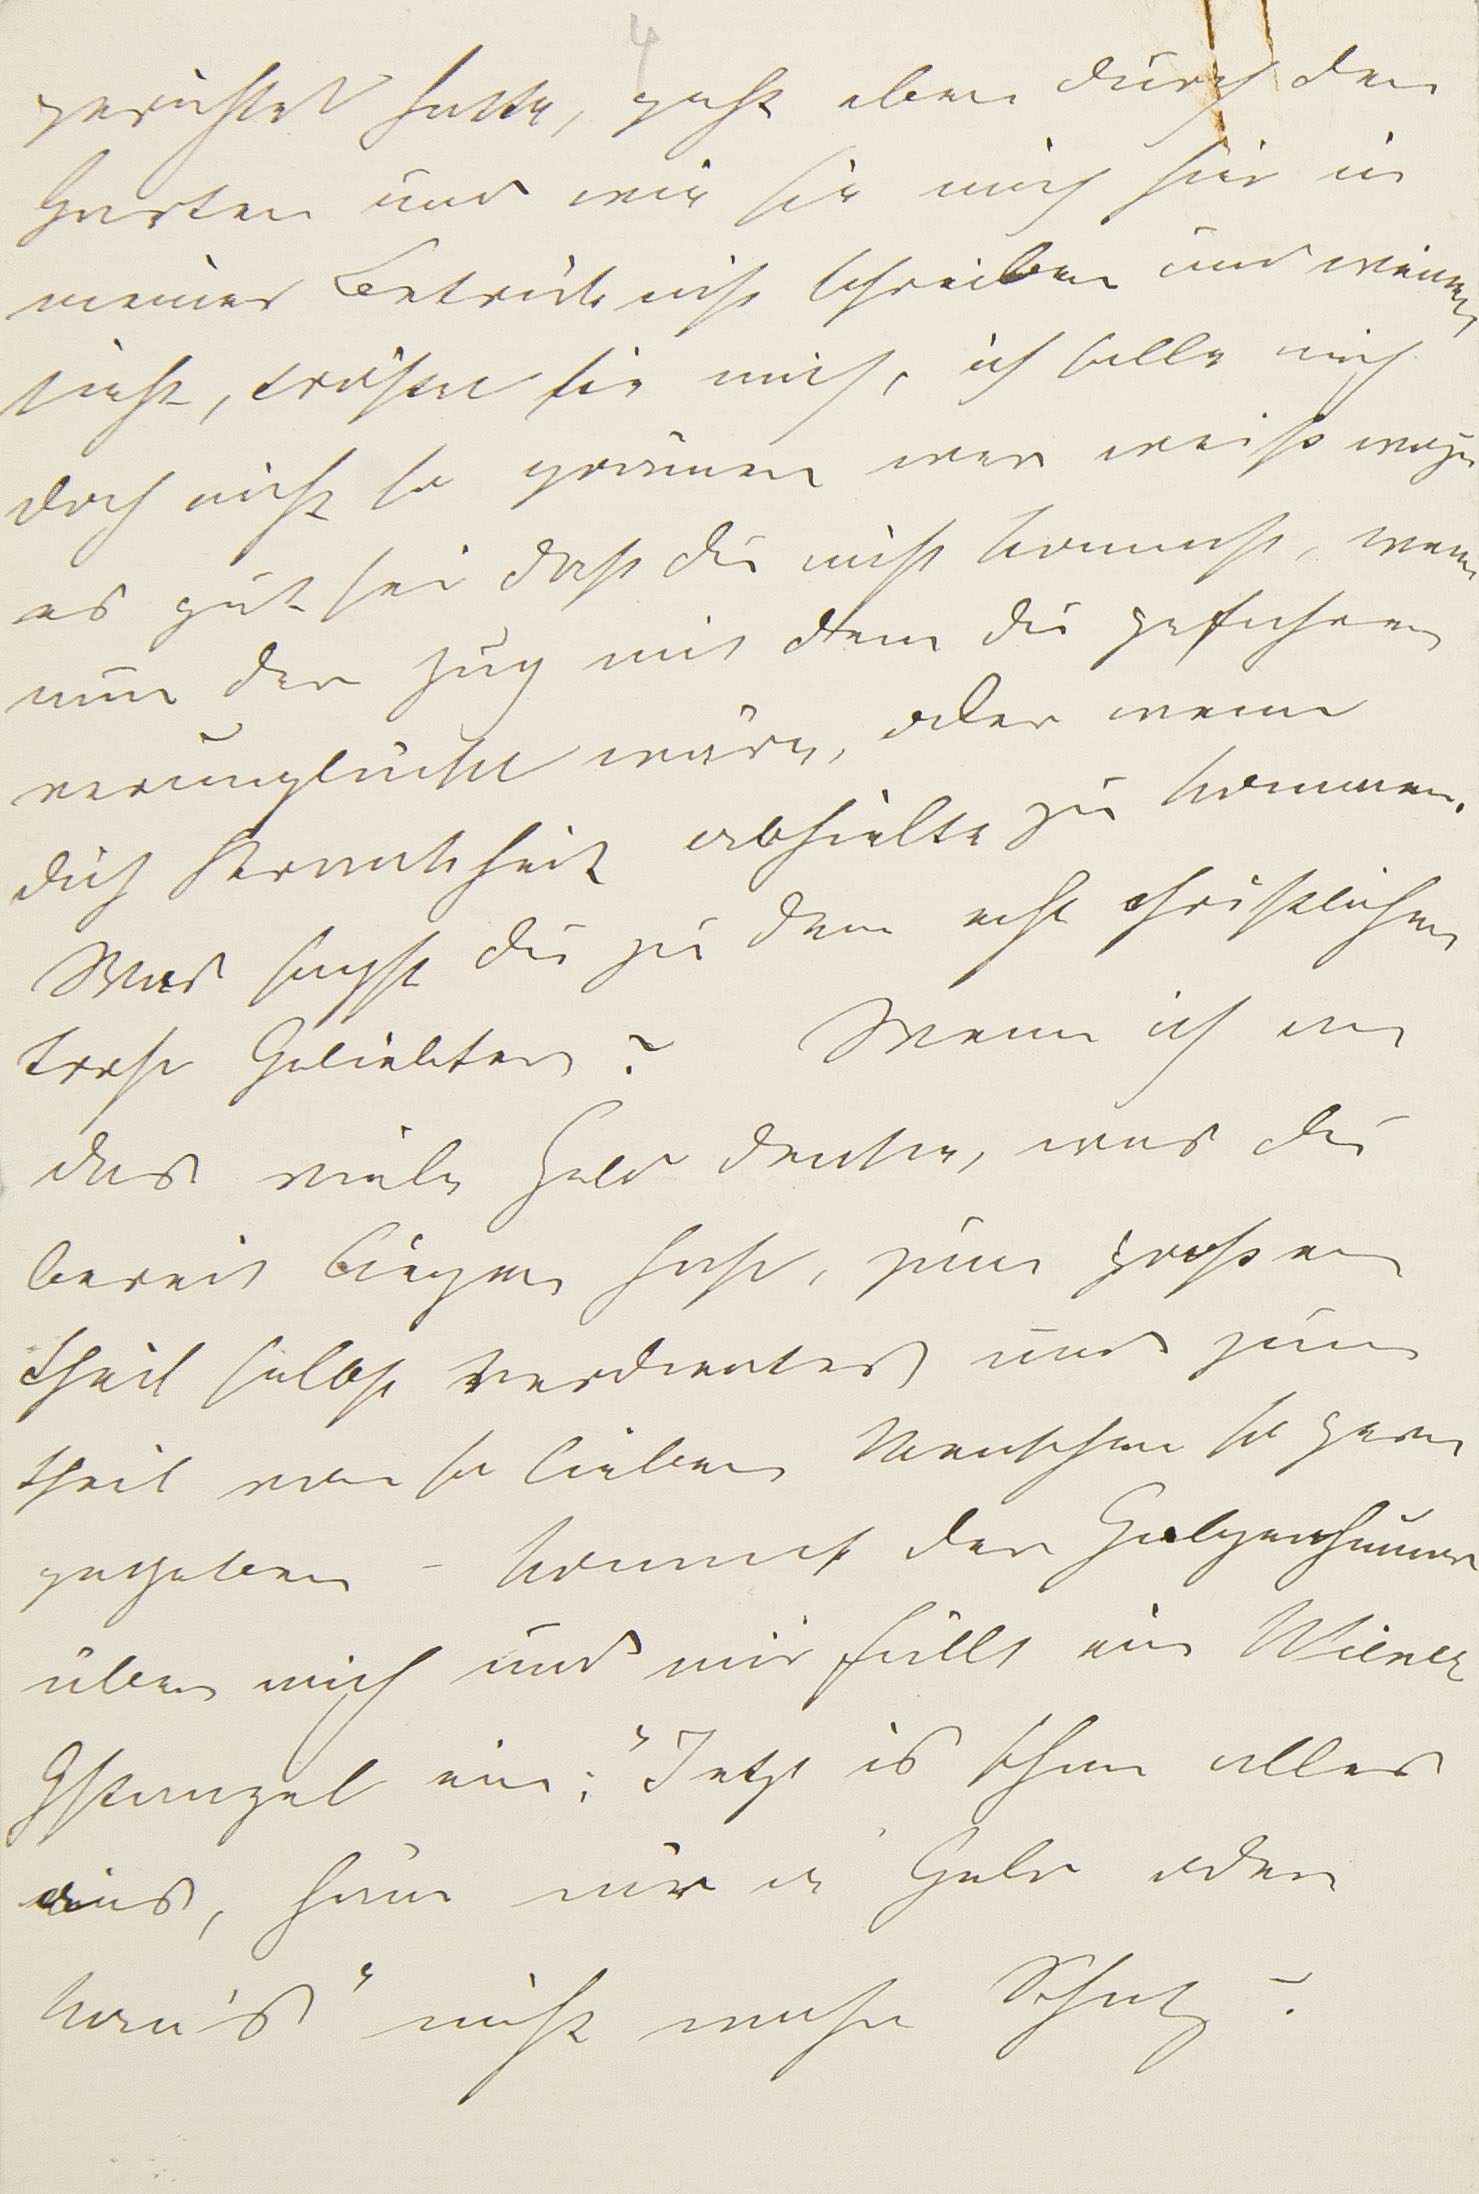 4
gerichtet hatte, geht eben durch den
Garten und wie sie mich hier in
meiner Betrübniß schreiben und weinen
sieht, tröstet sie mich, ich solle mich
doch nicht so grämen wer weiß wozu
es gut sei daß du nicht kommst, wenn
nun der Zug mit dem du gefahren
verunglückt wäre, oder wenn
dich Krankheit abhielte zu kommen.
Was sagst du zu dem echt christlichen
Trost Geliebter? Wenn ich an
das viele Geld denke, was du
bereit liegen hast, zum großen
Theil selbst verdientes und zum
Theil von so lieben Menschen so gern
gegeben – kommt der Galgenhumor
über mich und mir fällt ein Wiener
Gstanzel ein: "Jetzt is schon alles
aus, ham mir a Geld oder
kan's" nicht wahr Schatz?